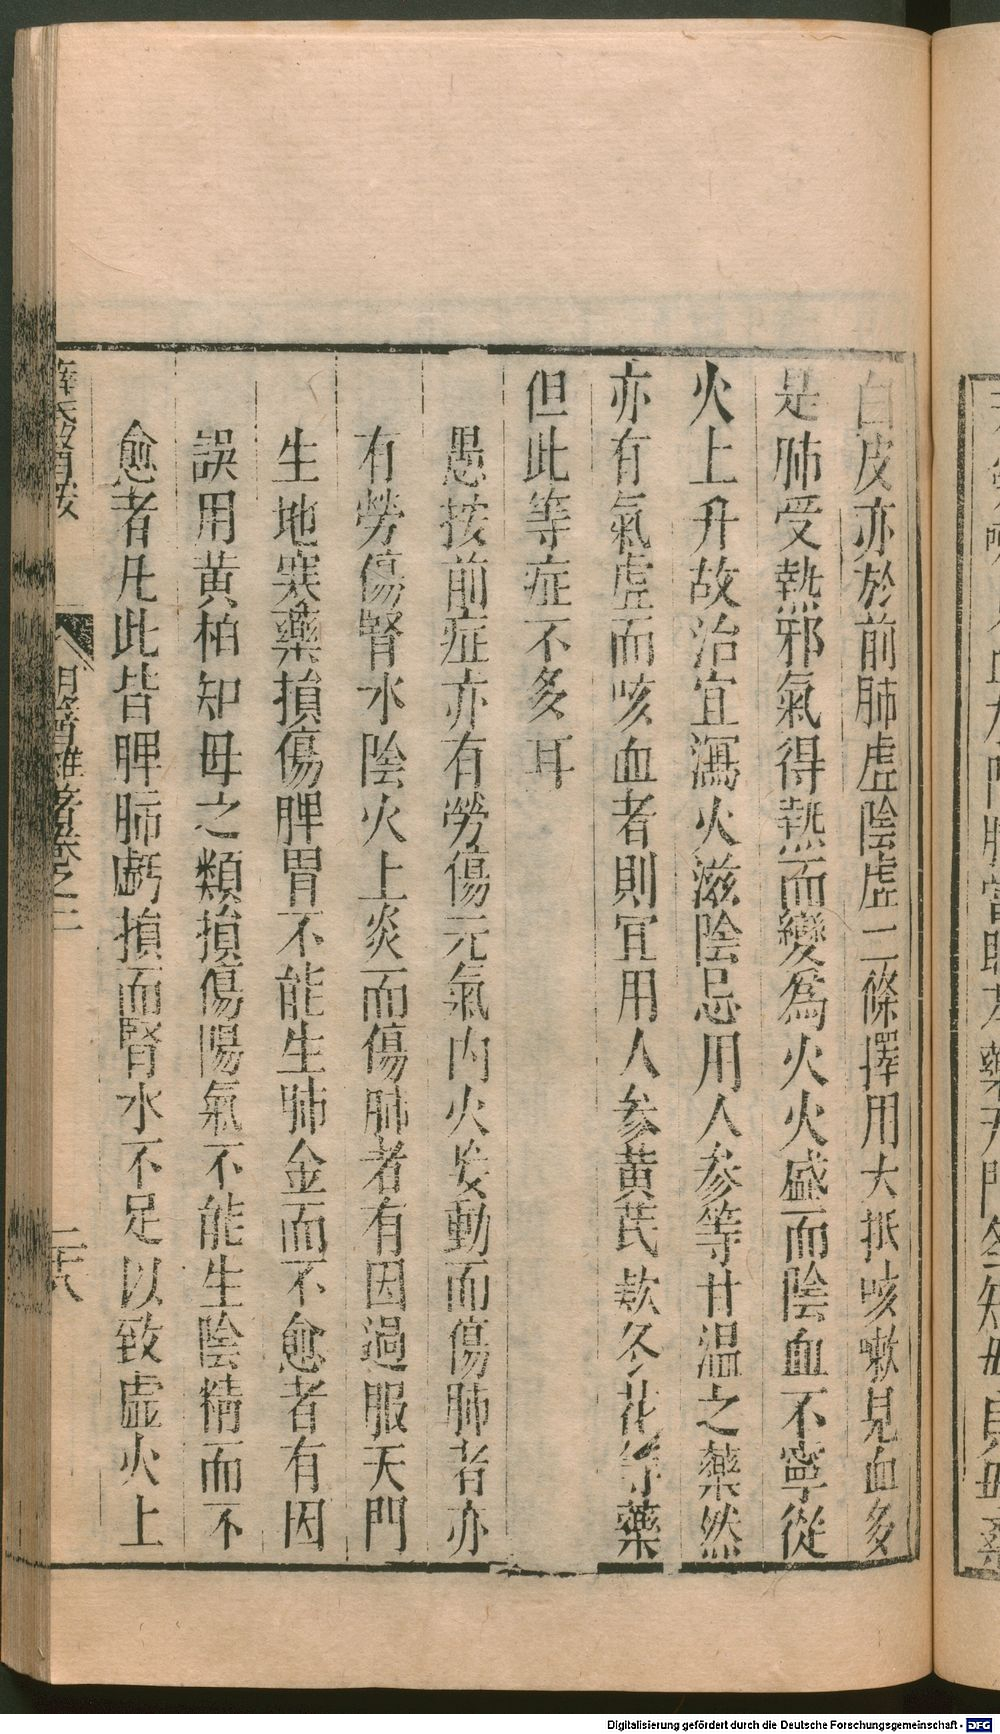 白皮亦於前肺虛陰虛二條擇用大抵咳嗽見血多
是肺受熱邪氣得熱而變爲火火盛而陰血不寧從
火上升故治宜瀉火滋陰忌用人參等甘溫之藥然
亦有氣虛而咳血者則宜用人參黃芪款冬花等藥
但此等症不多耳
愚按前症亦有勞傷元氣內火妄動而傷肺者亦
有勞傷腎水陰火上炎而傷肺者有因過服天門
生地寒藥損傷脾胃不能生肺金而不愈者有因
誤用黃柏知母之類損傷陽氣不能生陰精而不
愈者凡此皆脾肺虧損而腎水不足以致虛火上
薛氏醫按
明醫雜著卷之二
二十八
Digitalisierung gefördert durch die Deutsche Forschungsgemeinschaft - DFG